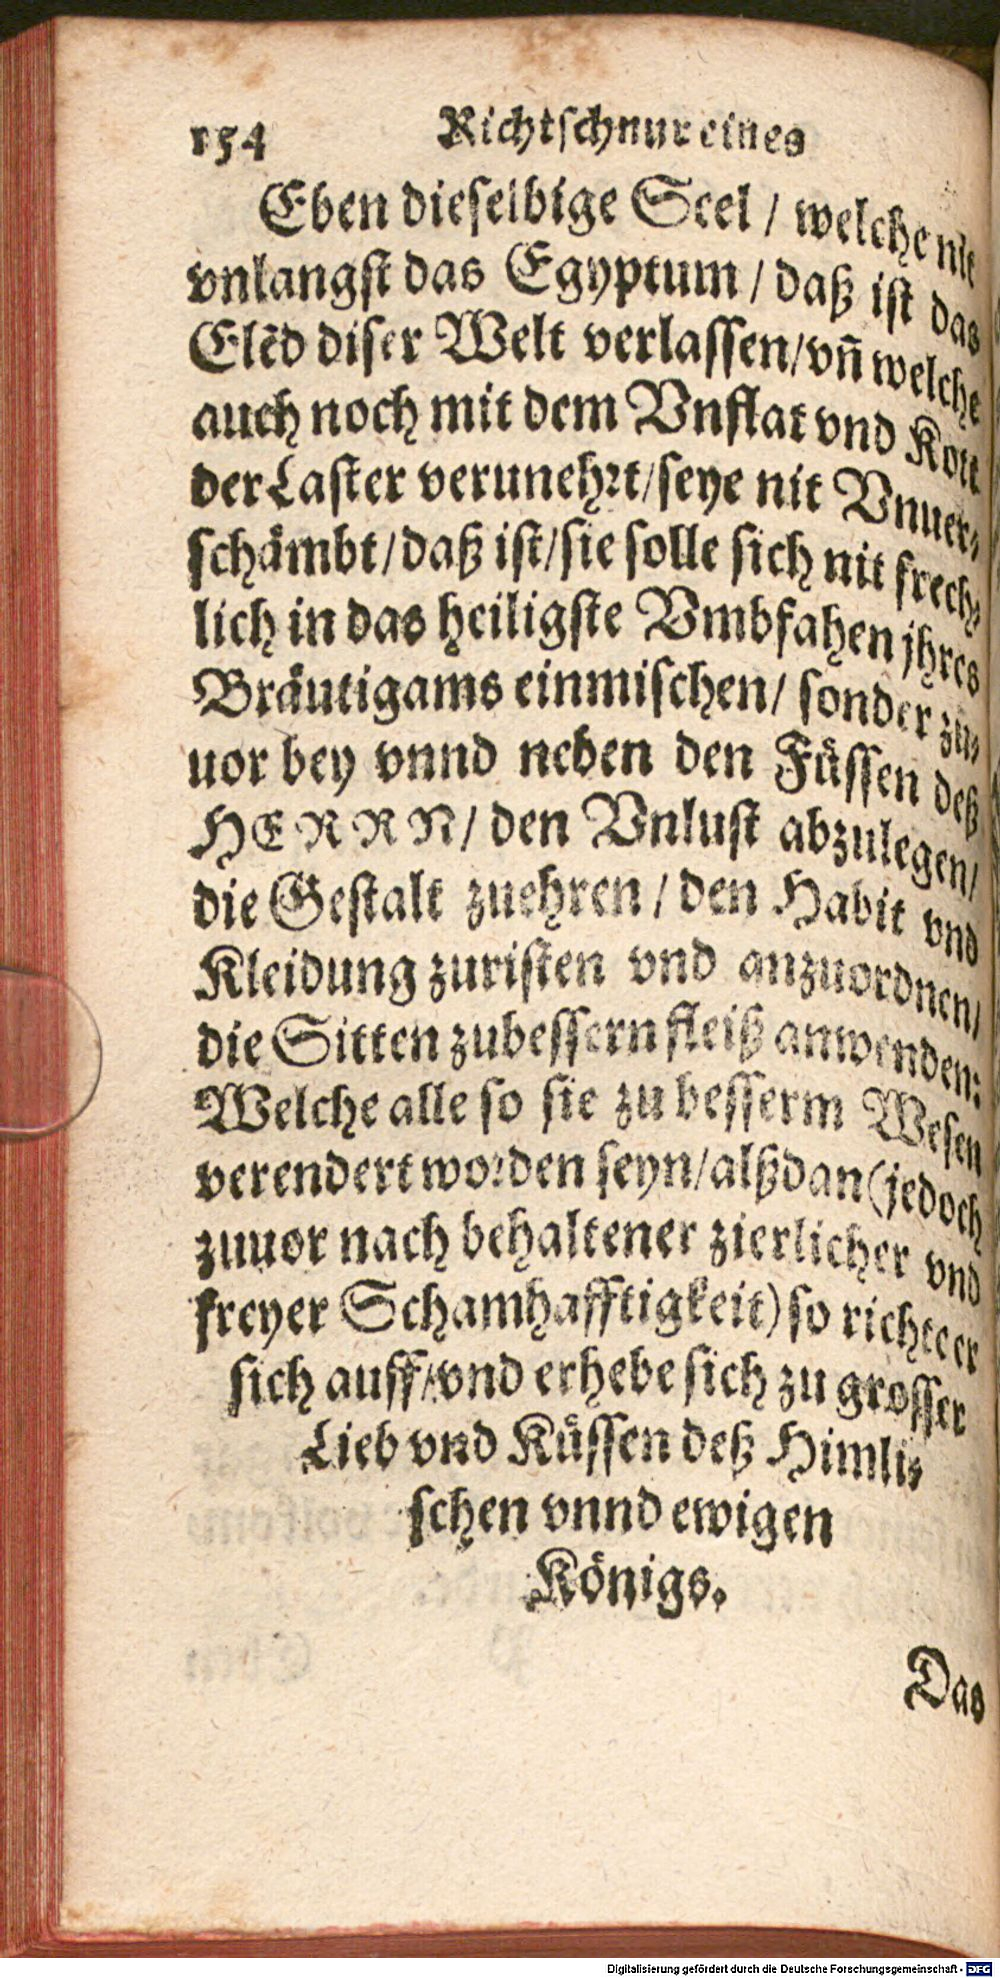 154 Richtschnur eines
Eben dieselbige Seel / welche nit
vnlangst das Egyptum / daß ist das
Elẽd diser Welt verlassen/vñ welche
auch noch mit dem Vnflat vnd Kott
der Laster verunehrt/seye nit Vnuer-
schämbt/daß ist/sie solle sich nit frech-
lich in das heiligste Vmbfahen jhres
Bräutigams einmischen/ sonder zu-
uor bey vnnd neben den Füssen deß
HERRN/ den Vnlust abzulegen/
die Gestalt zuehren / den Habit vnd
Kleidung zuristen vnd anzuordnen/
die Sitten zubessern fleiß anwenden:
Welche alle so sie zu besserm Wesen
verendert worden seyn/alßdan (jedoch
zuuor nach behaltener zierlicher vnd
freyer Schamhafftigkeit) so richte er
sich auff/vnd erhebe sich zu grosser
Lieb vnd Küssen deß Himli-
schen vnnd ewigen
Königs.
Das
Digitalisierung gefördert durch die Deutsche Forschungsgemeinschaft - DFG